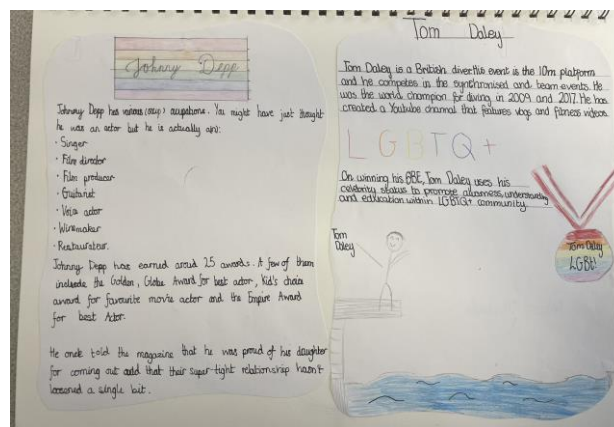 Johnny Depp
Johnny Depp has various (occup) occupations. You might have just thought
he was an actor but he is actually a(n):
· Singer
· Film director
· Film producer
· Guitarist
· Voice actor
· Winemaker
· Restaurateur.
Johnny Depp has earned around 25 awards. A few of them
include the Golden, Globe Award for best actor, Kid's choice
award for favourite movie actor and the Empire Award
for best Actor.
He once told the magazine that he was proud of his daughter
for coming out and that their super-tight relationship hasn't
loosened a single bit.
Tom Daley
Tom Daley is a British diver. His event is the 10m platform
and he competes in the synchronised and team events. He
was the world champion for diving in 2009 and 2017. He has
created a Youtube channel that features vlogs and fitness videos.
LGBTQ+
On winning his OBE, Tom Daley uses his
celebrity status to promote allowness, understanding
and education within LGBTQ+ community.
Tom
Daley
Tom Daley
LGBT!